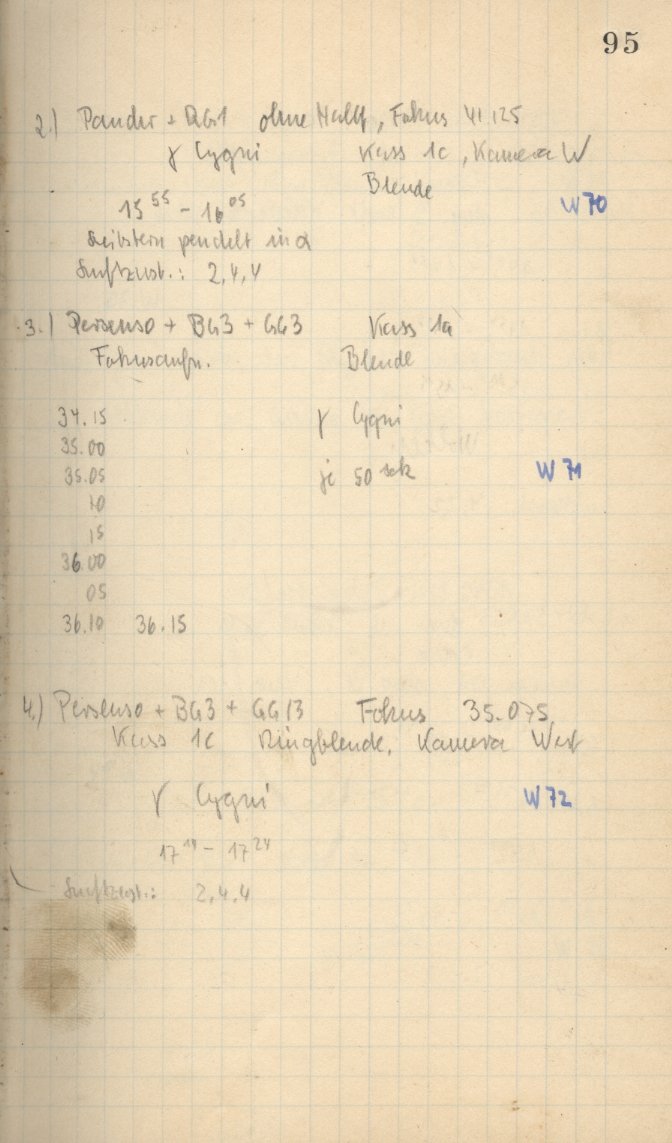 95
2.) Pander + RG1 ohne Halbf, Fokus 41,25
γ Cygni Kass 1c, Kamera W
Blende
15 55 - 16 05 W70
Leitstern pendelt in α
Luftzust.: 2,4,4
3.) Persenso + BG3 + GG3 Kass 1a
Fokusaufn. Blende
34.15 γ Cygni
35.00
35.05 je 50 sek W71
10
15
36.00
05
36.10 36.15
4.) Persenso + BG3 + GG13 Fokus 35.075
Kass 1c Ringblende, Kamera West
γ Cygni W72
17 14 - 17 24
Luftzust.: 2,4,4